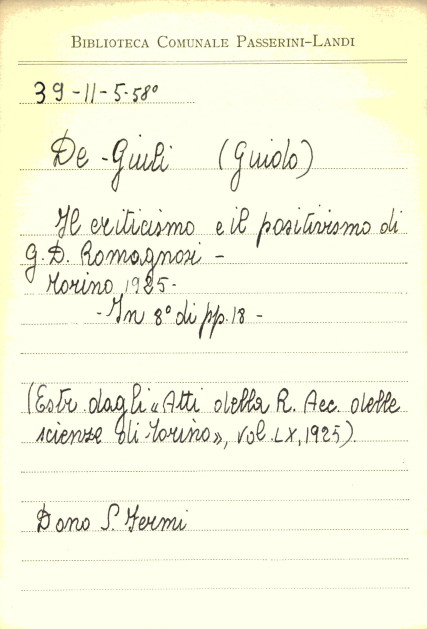 BIBLIOTECA COMUNALE PASSERINI-LANDI
39-11-5-58°
De-Giuli (Guido)
Il criticismo e il positivismo di
G. D. Romagnosi -
Torino 1925-
- In 8° di pp. 18 -
(Estr. dagli «Atti della R. Acc. delle
scienze di Torino», vol. LX, 1925).
Dono S. Fermi